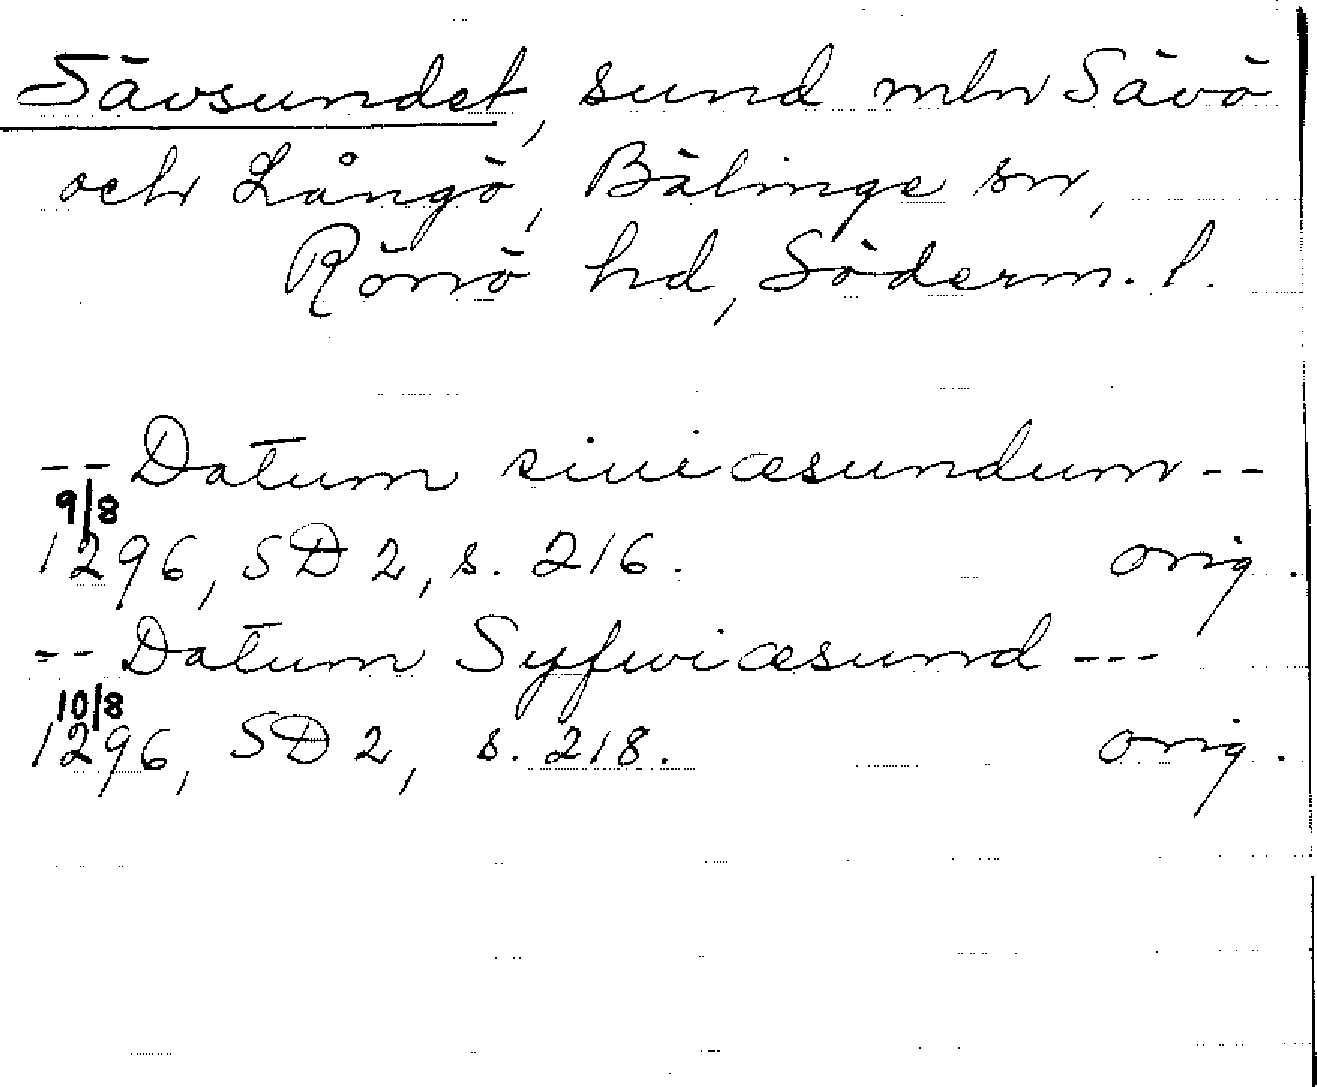 Sävsundet, sund mln Sävö
och Långö, Bälinge sn,
Rönö hd, Söderm. l.
-- Datum siuiæsundum --
9/8
1296, SD 2, s. 216. orig.
-- Datum Syfwiæsund ---
10/8
1296, SD 2, s. 218. orig.